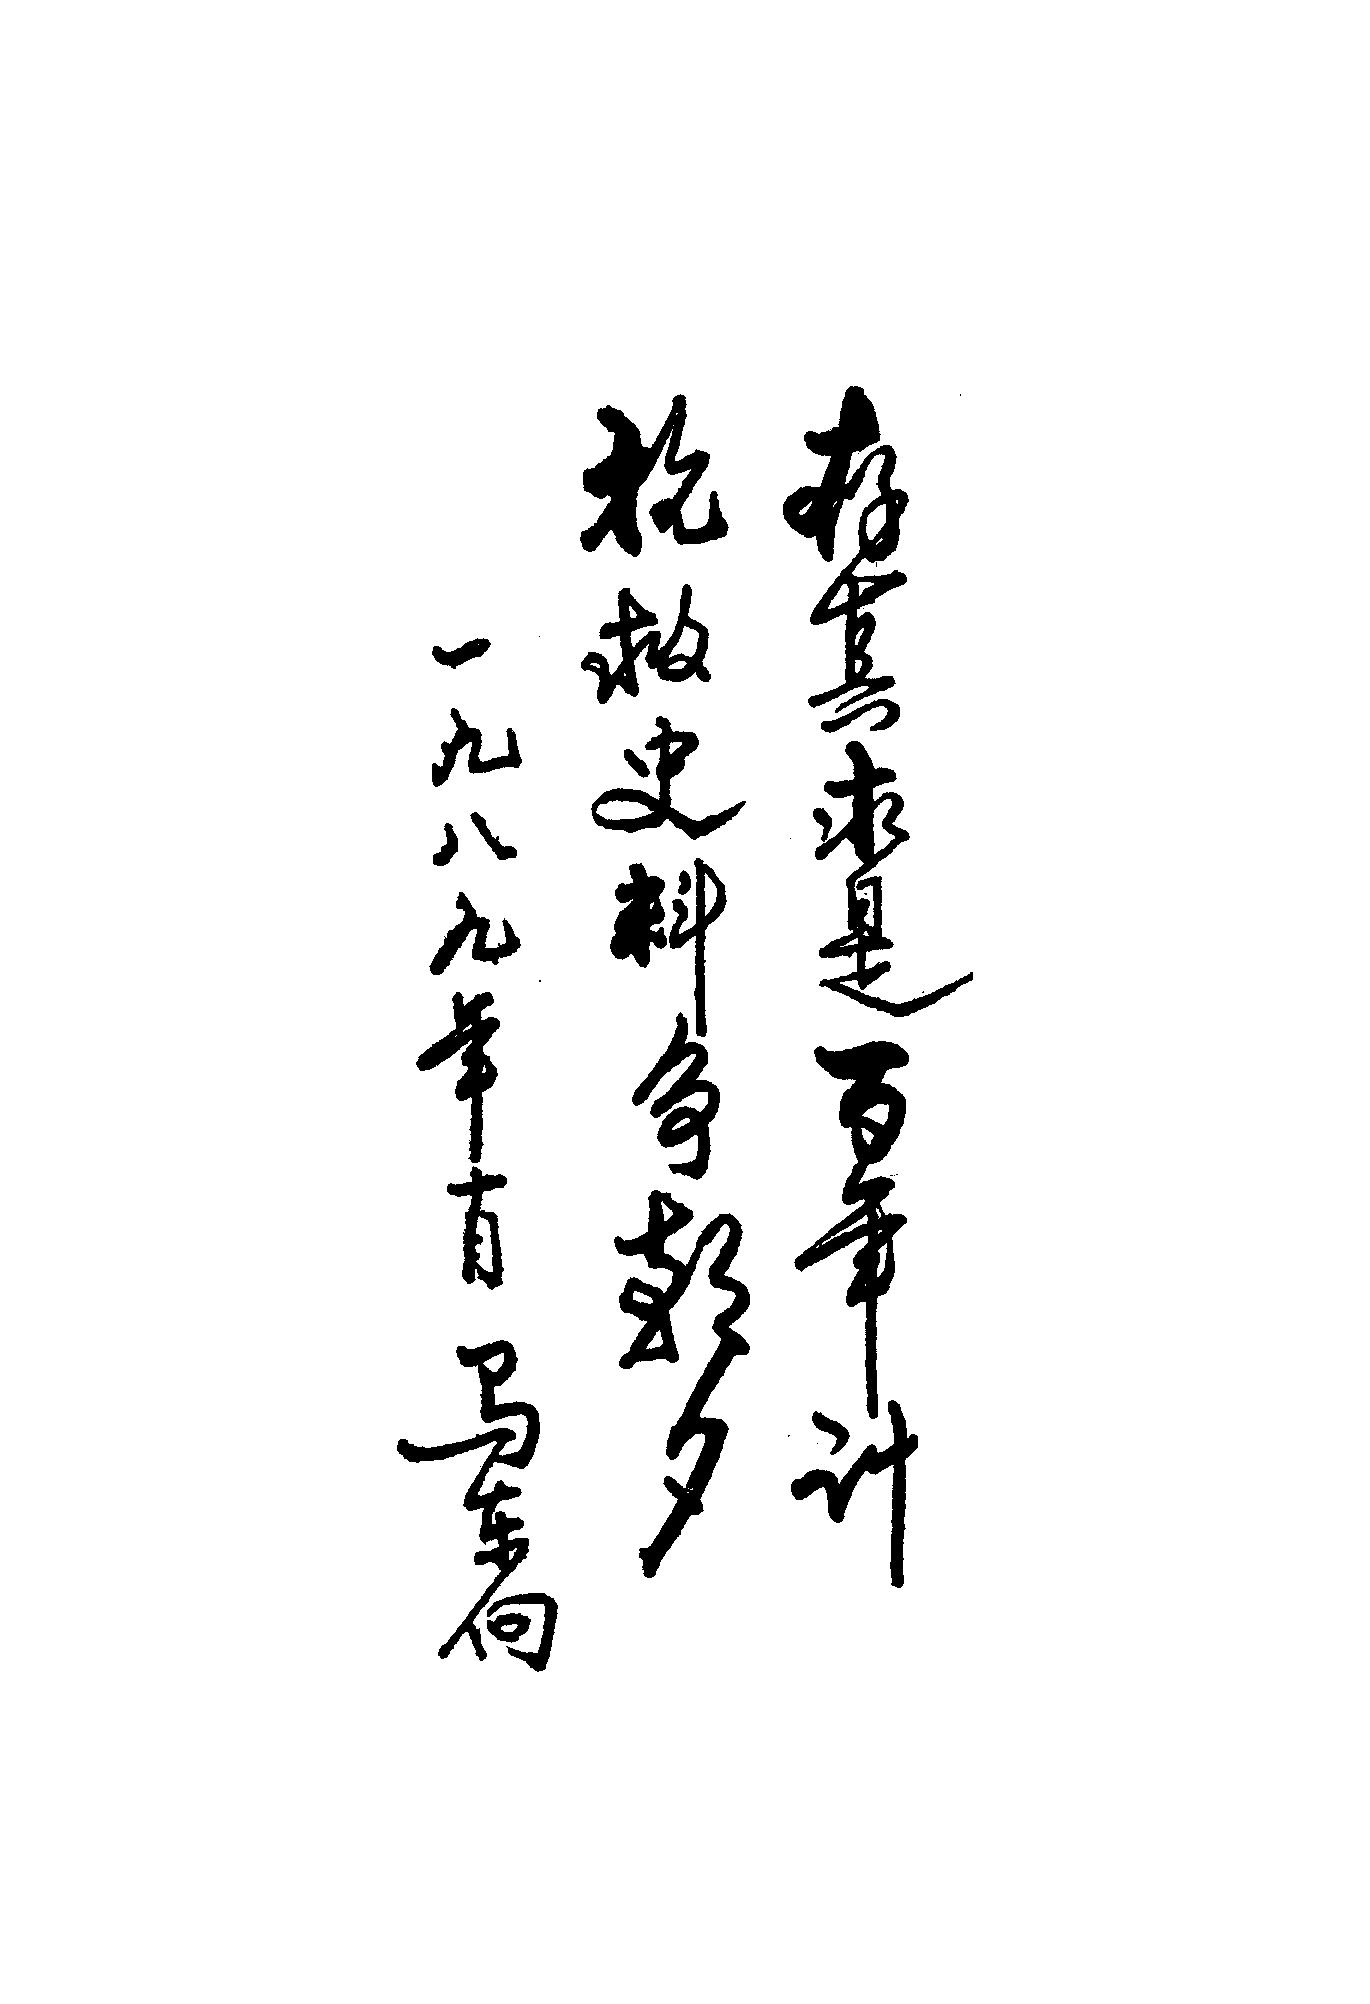 存真求是百年计
抢救史料争朝夕
一九八九年十月 马东向